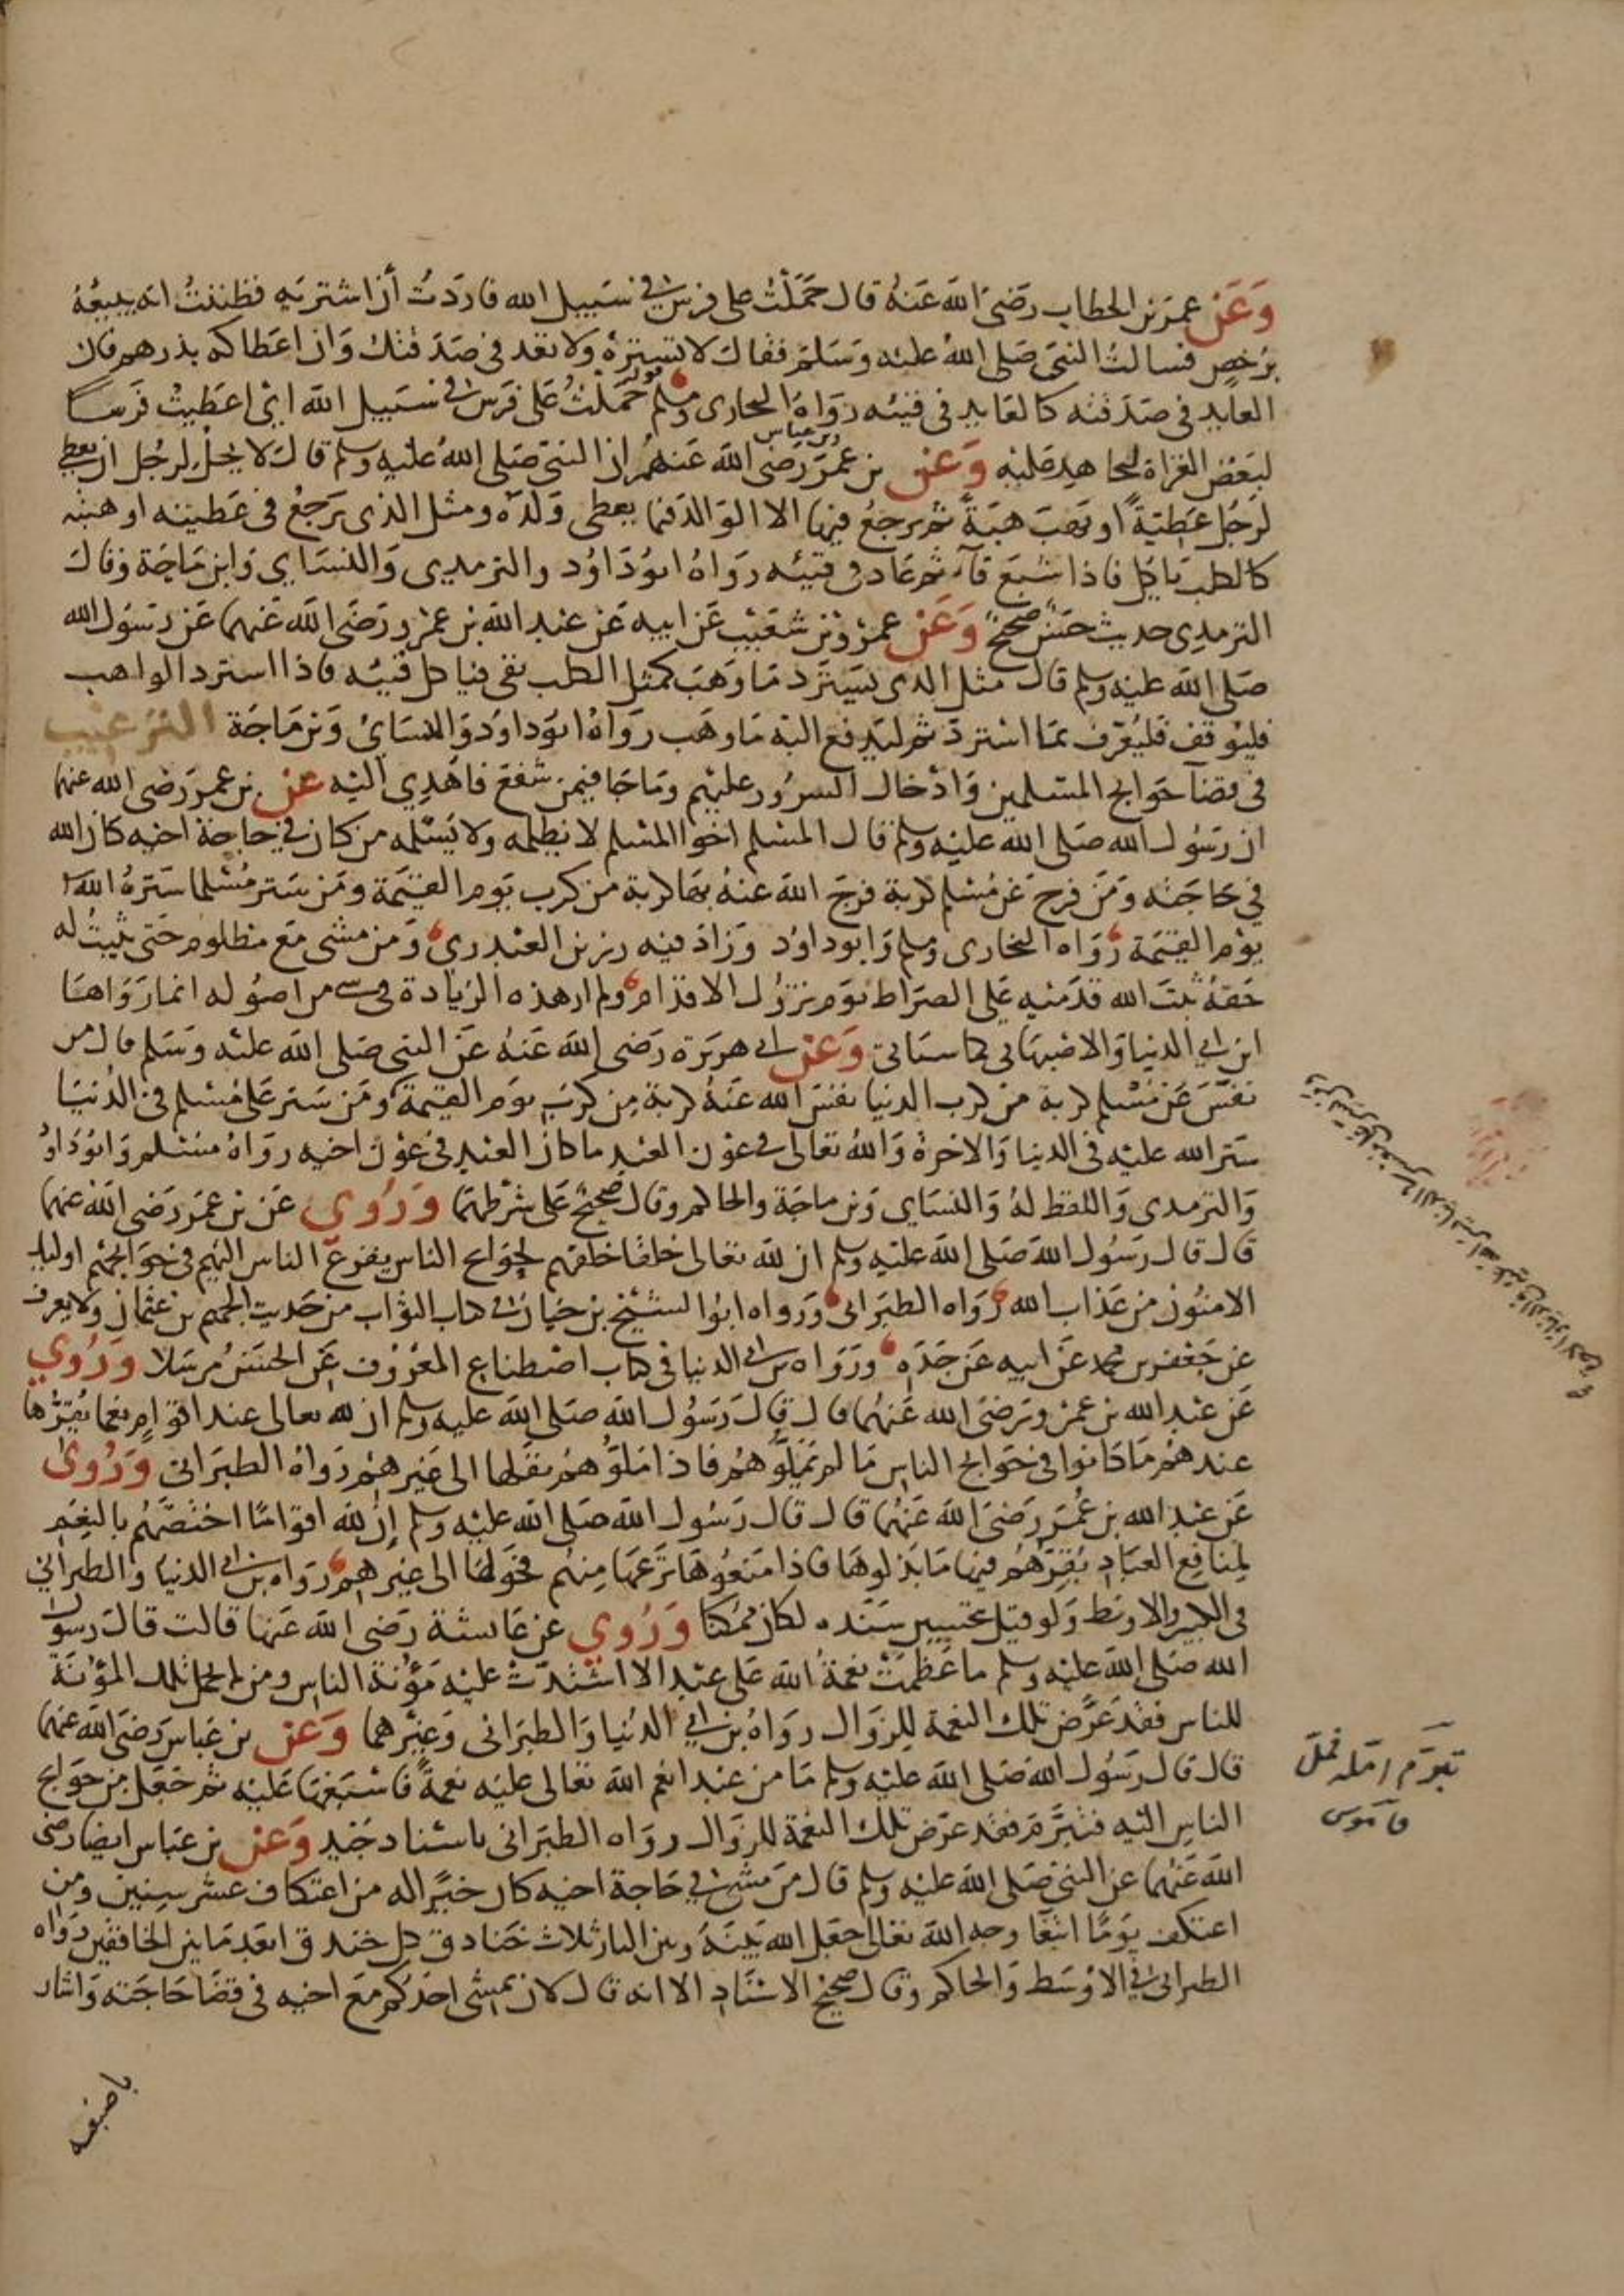 وَعَن عمر بن الخطاب رضي الله عنه قال حملت على فرس في سبيل الله فاردت أن اشتريه فظننت انه يبيعه
برخص فسالت النبي صلى الله عليه وسلم فقال لا تشتره ولا تعد في صدقتك وان اعطاكه بدرهم فان
العايد في صدقته كالعايد في قيئه رواه البخارى ومسلم قوله حملت على فرس في سبيل الله اي اعطيت فرسا
لبعض الغزاة ليجاهد عليه وَعَن بن عمر وبن عباس رضي الله عنهم ان النبي صلى الله عليه وسلم قال لا يحل لرجل ان يعطي
لرجل عطية او يهب هبة ثم يرجع فيها الا الوالد فيما يعطى ولده ومثل الذى يرجع في عطيته او هبته
كالكلب ياكل فاذا شبع قآء ثم عاد في قيئه رواه ابو داود والترمدى والنسَاي وابن ماجة وقال
الترمدى حديث حسن صحيح وَعَن عمرو بن شعيب عن ابيه عن عبد الله بن عمرو رضي الله عنهما عن رسول الله
صلى الله عليه وسلم قال مثل الدى يسترد ما وهب كمثل الكلب يقى فياكل قيئه فاذا استرد الواهب
فليوقف فليعرف بما استرد ثم ليدفع اليه ما وهب رواه ابو داود والنسَائ وبن ماجة الترغيب
في قضآ حوايج المسلمين وادخال السرور عليهم وما جا فيمن شفع فاهدي اليه عن بن عمر رضي الله عنهما
ان رسول الله صلى الله عليه وسلم قال المسلم اخوا المسلم لا يظلمه ولا يسلمه من كان في حاجة اخيه كان الله
في حاجته ومن فرج عن مسلم كربة فرج الله عنه بها كربة من كرب يوم القيمة ومن ستر مسلما ستره الله
يوم القيمة رواه البخارى ومسلم وابو داود وزاد فيه رزين العبدري ومن مشى مع مظلوم حتى يثبت له
حقه ثبت الله قدميه على الصراط يوم تزول الاقدام ولم ار هذه الزيادة في شى من اصوله انما رواها
ابن ابي الدنيا والاصبهاني كما سياتي وَعَن ابى هريرة رضى الله عنه عن النبى صلى الله عليه وسلم قال من
نفس عن مسلم كربة من كرب الدنيا نفس الله عنه كربة من كرب يوم القيمة ومن ستر على مسلم في الدنيا
ستر الله عليه في الدنيا والاخرة والله تعالى في عون العبد ما كان العبد في عون اخيه رواه مسلم وابو داود
والترمدى واللفظ له والنسَاى وبن ماجة والحاكم وقال صحيح على شرطهما وَرُوي عن بن عمر رضى الله عنهما
قال قال رسول الله صلى الله عليه وسلم ان لله تعالى خلقا خلقهم لحوايج الناس يفزع الناس اليهم في حوايجهم اوليك
الامنون من عذاب الله رواه الطبرانى ورواه ابوا الشيخ بن حيان في كتاب الثواب من حديث الجهم بن عثمان ولا يعرف
عن جعفر بن محمد عن ابيه عن جده ورواه بن ابى الدنيا في كتاب اصطناع المعروف عن الحسن مرسلا وَرُوي
عن عبد الله بن عمرو رضى الله عنهما قال قال رسول الله صلى الله عليه وسلم ان لله تعالى عند اقوام نعما يقرها
عندهم ما كانوا في حوايج الناس ما لم يملوهم فاذا ملوهم نقلها الى غيرهم رواه الطبرانى وَرُوى
عن عبد الله بن عمر رضى الله عنهما قال قال رسول الله صلى الله عليه وسلم إن لله اقواما اختصهم بالنعم
لمنافع العباد يقرهم فيها ما بذلوها فاذا منعوها نزعها منهم فحولها الى غيرهم رواه بن ابى الدنيا والطبراني
فى الكبير والاوسط ولو قيل بتحسين سنده لكان ممكنا وَرُوي عن عايشة رضى الله عنها قالت قال رسول
الله صلى الله عليه وسلم ما عظمت نعمة الله على عبد الا اشتدت عليه مؤنة الناس ومن لم يحمل تلك المؤنة
للناس فقد عرض تلك النعمة للزوال رواه بن ابي الدنيا والطبرانى وغيرهما وَعَن بن عباس رضى الله عنهما
قال قال رسول الله صلى الله عليه وسلم ما من عبد انعم الله تعالى عليه نعمة فاسبغها عليه ثم جعل من حوايج
الناس اليه فتبرم فقد عرض تلك النعمة للزوال رواه الطبرانى باسناد جيد وَعَن بن عباس ايضا رضى
الله عنهما عن النبى صلى الله عليه وسلم قال من مشى في حاجة اخيه كان خيرا له من اعتكاف عشر سنين ومن
اعتكف يوما ابتغا وجه الله تعالى جعل الله بينه وبين النار ثلاث خنادق كل خندق ابعد ما بين الخافقين رواه
الطبرانى في الاوسط والحاكم وقال صحيح الاسناد الا انه قال لان يمشى احدكم مع اخيه في قضا حاجته واشار
باصبعه
تبرم امله فمل
قاموس